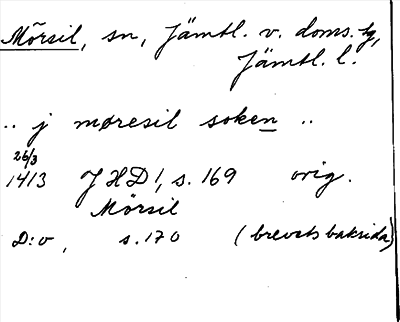 Mörsil, sn, Jämtl. v. doms. tg,
Jämtl. l.
.. j møresil soken ..
26/3
1413 JHD 1, s. 169 orig.
Mörsil
D:o, s. 170 (brevets baksida)